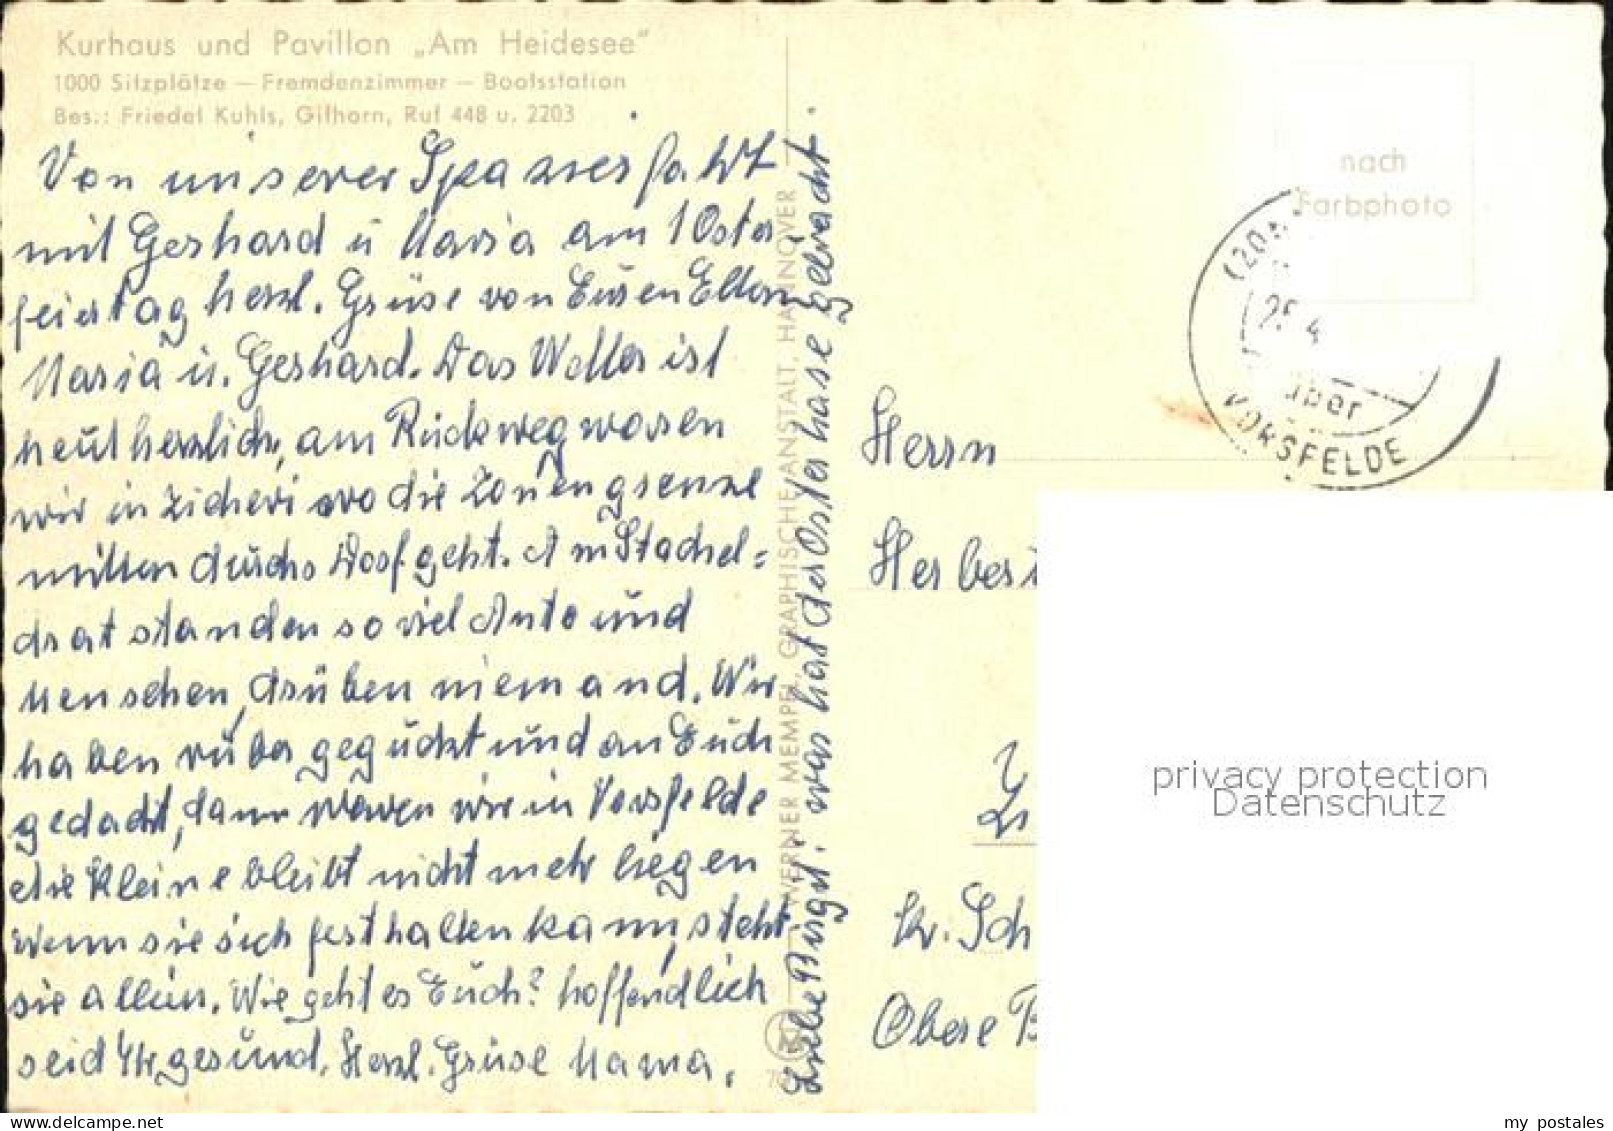 Kurhaus und Pavillon „Am Heidesee"
1000 Sitzplätze — Fremdenzimmer — Bootsstation
Bes.: Friedel Kuhls, Gifhorn, Ruf 448 u. 2203
Von unserer Spazierfahrt
mit Gerhard u Maria am 1 Oster-
feiertag herzl. Grüse von Euren Eltern
Maria u. Gerhard. Das Wetter ist
heut herrlich, am Rückweg waren
wir in Zicheri wo die Zonengrenze
mitten durchs Dorf geht. Am Stachel=
drat standen so viel Auto und
Menschen, drüben niemand. Wir
haben rüber geguckt und an Euch
gedacht, dann waren wir in Vorsfelde
die Kleine bleibt nicht mehr liegen
wenn sie sich festhalten kann, steht
sie allein. Wie geht es Euch? hoffendlich
seid Ihr gesund. Herzl. Grüse Mama.
Liebe Birgit! was hat der Osterhase gebracht.
WERNER MEMPEL, GRAPHISCHE ANSTALT, HANNOVER
nach
Farbphoto
(20a
25 4
über
VORSFELDE
Herrn
Herbert
Kr. Sch
Obere B
privacy protection
Datenschutz
my_postales